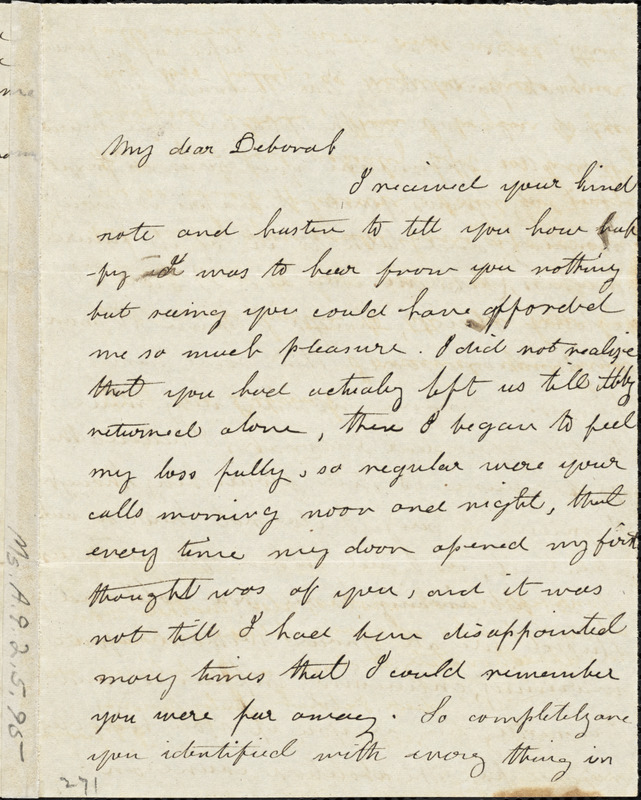 My dear Deborah
I received your kind
note and hasten to tell you how hap
-py I was to hear from you nothing
but seeing you could have afforded
me so much pleasure. I did not realize
that you had actualy left us till
returned alone, then I began to feel
my loss fully, so regular were your
calls morning noon and night, that
every time my door opened my first
thought was of you, and it was
not till I had been disappointed
many times that I could remember
you were far away. So completely are
you identified with every thing in
271
Ms. A.9.2.5.95